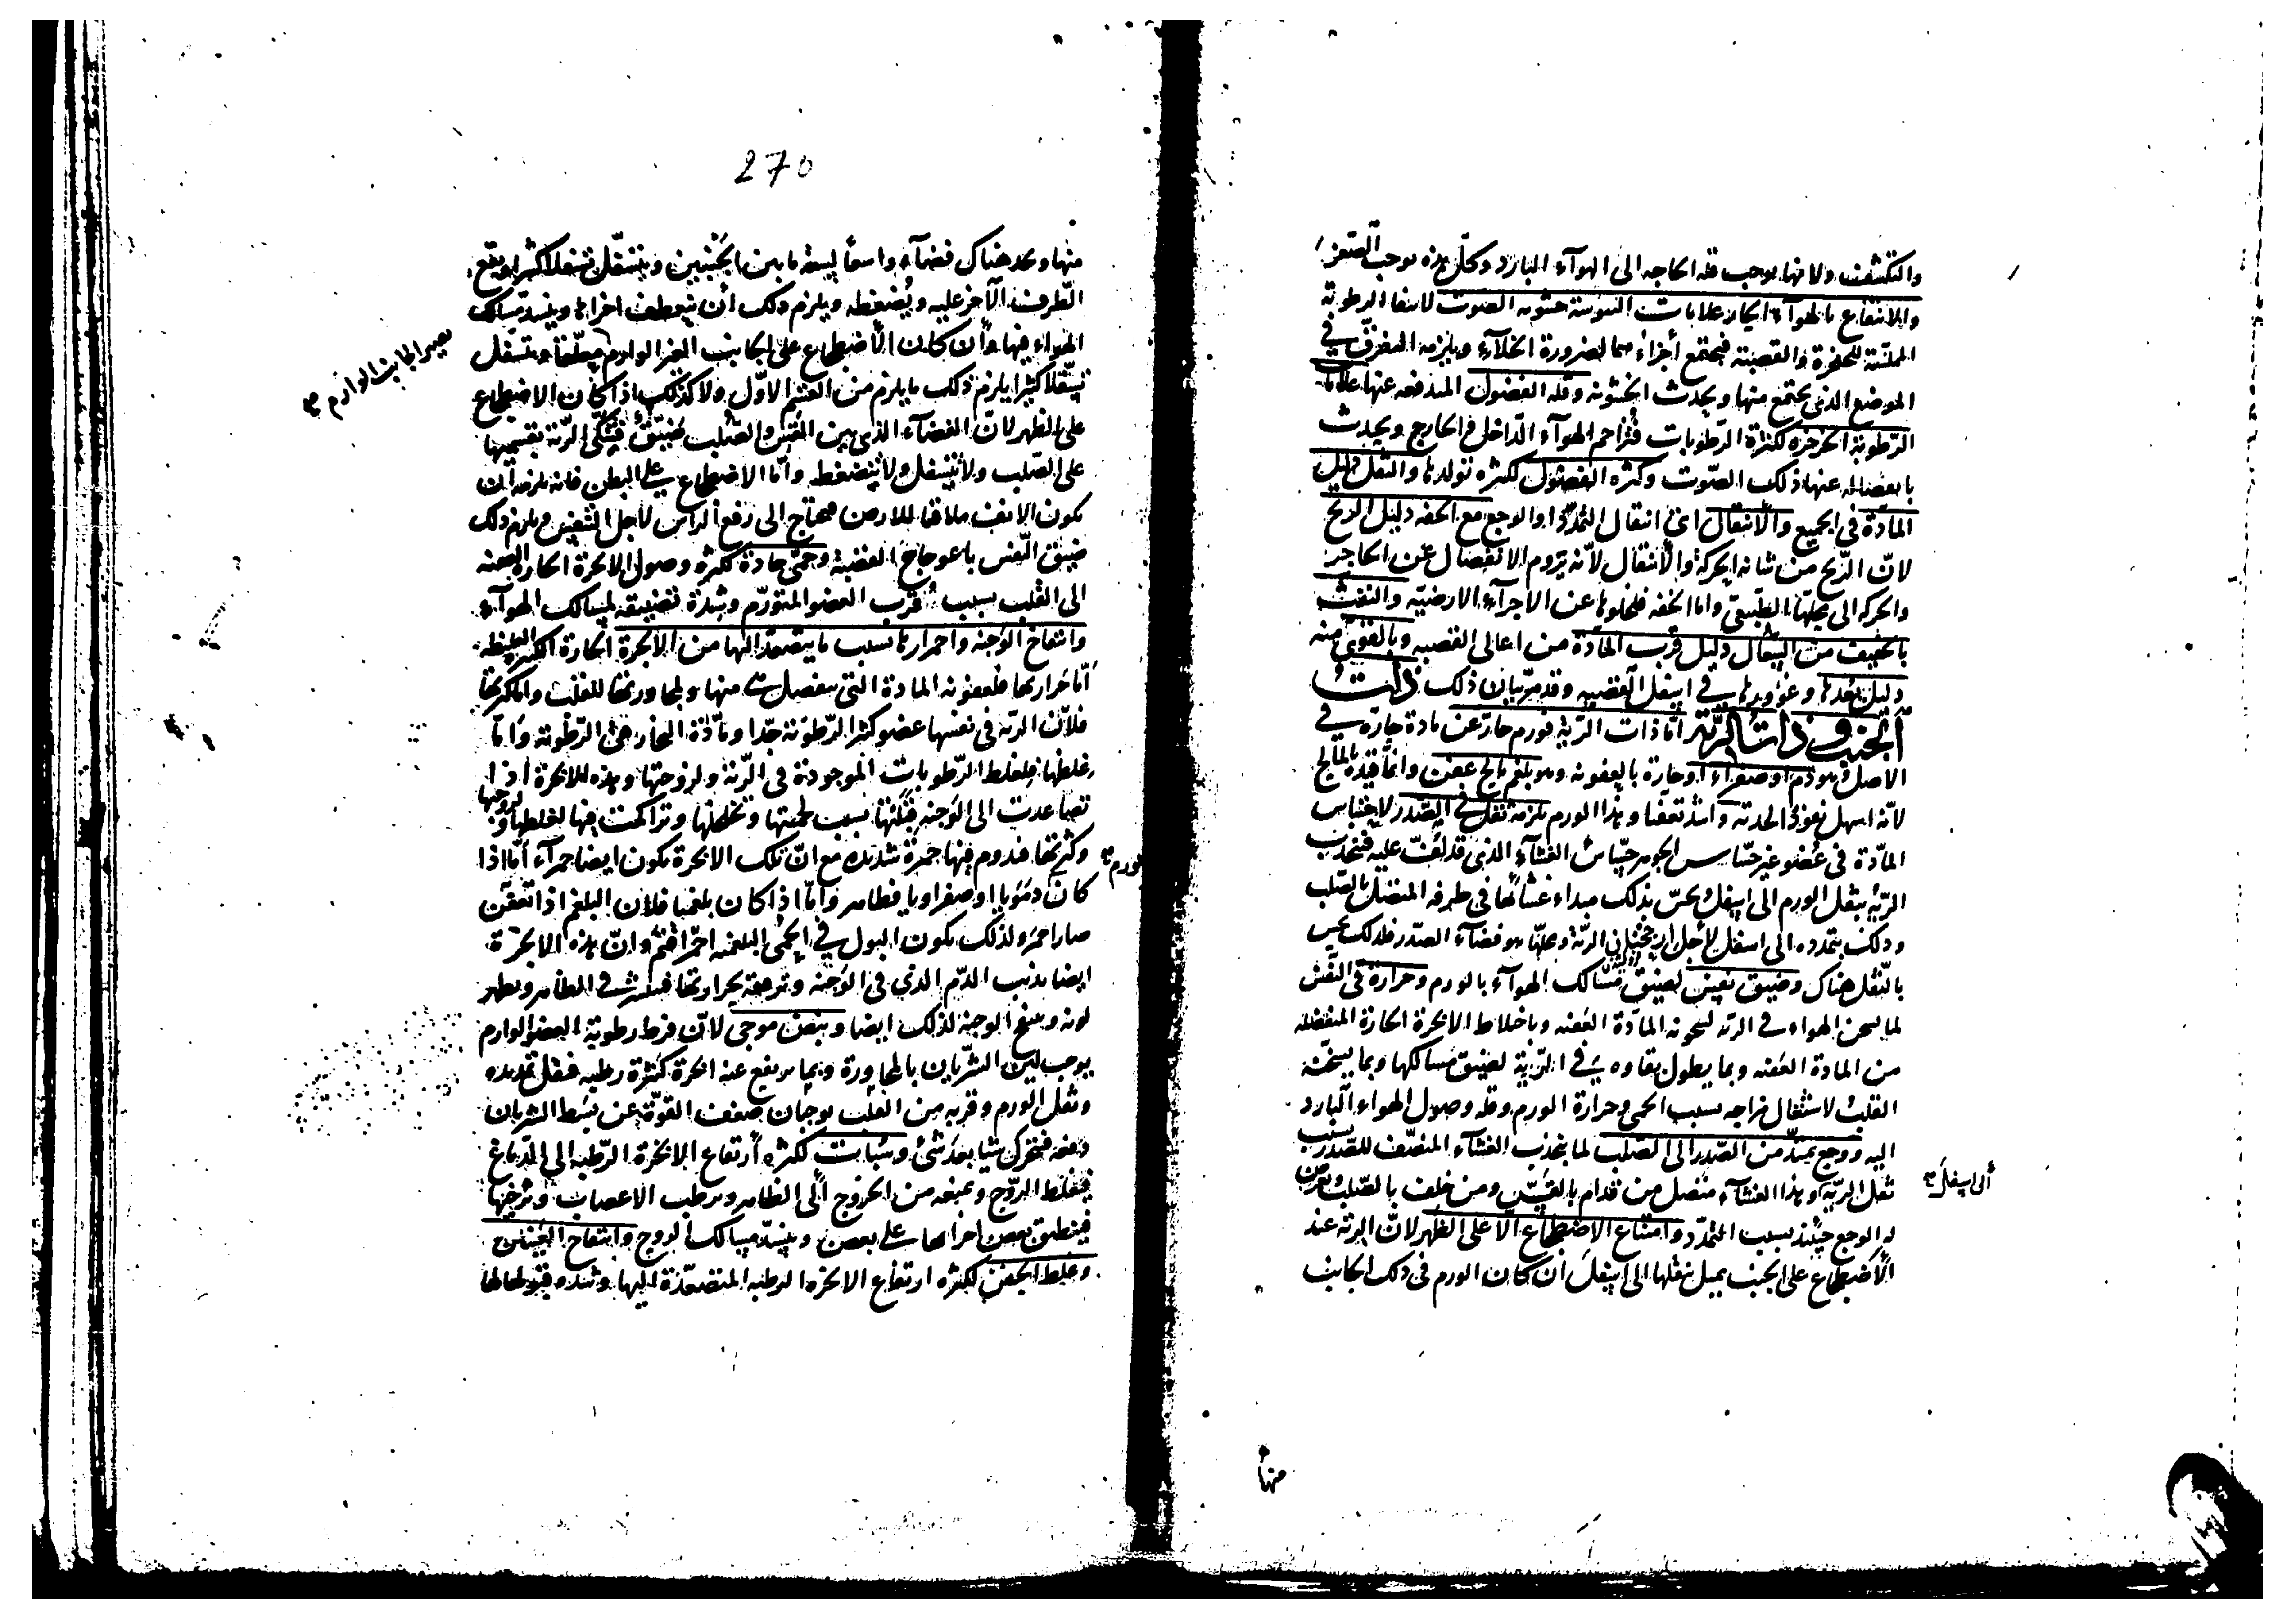 والتكثف ولانها يوجب قلة الحاجة الى الهوآء البارد وكل هذه يوجب الصغر
والانتفاع بالهوآء الحار علامات اليبوسة خشونة الصوت لانتفا الرطوبة
المملسة للحنجرة والقصبة فيجتمع أجزاؤهما لضرورة الخلآء ويلزمه التفرق في
الموضع الذى يجتمع منها ويحدث الخشونة وقلة الفضول المندفعة عنها علامات
الرطوبة الخرخرة لكثرة الرطوبات فتزاحم الهوآء الداخل والخارج ويحدث
بانفصاله عنها ذلك الصوت وكثرة الفضول لكثرة تولدها والثقل دليل
المادة في الجميع والانتقال اى انتقال التمدد او الوجع مع الخفة دليل الريح
لان الريح من شانه الحركة والانتقال لانه يروم الانفصال عن الحاجز
والحركة الى محلها الطبيعى واما الخفة فلخلوها عن الاجزآء الارضية والنفث
بالخفيف من السعال دليل قرب المادة من اعالى القصبة وبالقوى منه
دليل بعدها وغورها في اسفل القصبة وقد مر بيان ذلك ذات
الجنب وذات الرئة اما ذات الرية فورم حار عن مادة حارة في
الاصل وهو دم او صفراء او حارة بالعفونة وهو بلغم مالح عفن وانما قيده بالمالح
لانه اسهل نفوذا لحدته واشد تعفنا وهذا الورم يلزمه ثقل في الصدر لاحتباس
المادة في عضو غير حساس الجوهر حساس الغشآء الذى قد لفت عليه فتنجذب
الرية بثقل الورم الى اسفل يحس بذلك مبداء غشائها في طرفه المتصل بالصلب
وذلك يتمدده الى اسفل لاجل ارجحنان الرئة ومحلها هو فضآء الصدر فلذلك يحس
بالثقل هناك وضيق نفس لضيق مسالك الهوآء بالورم وحرارة في النفس
لما يسخن الهواء في الرئة لسخونة المادة العفنة وباختلاط الابخرة الحارة المنفصلة
من المادة العفنة وبما يطول بقاوه في الرية لضيق مسالكها وبما يسخنه
القلب لاشتعال مزاجه بسبب الحمى وحرارة الورم وقلة وصول الهواء البارد
اليه ووجع يمتد من الصدر الى الصلب لما ينجذب الغشآء المنصف للصدر بسبب
ثقل الرية وهذا الغشآء متصل من قدام بالقس ومن خلف بالصلب ويعرض
الى اسفل
له الوجع حينئذ بسبب التمدد وامتناع الاضطجاع الا على الظهر لان الرئة عند
الاضطجاع على الجنب يميل بثقلها الى اسفل ان كان الورم في ذلك الجانب
منها
270
منها وبعد هناك فضآء واسعا يسعه ما بين الجنبين ويتسفل تسفلا كثيرا ويقع
الطرف الآخر عليه ويضغطه ويلزم ذلك أن ينعطف اجزاءها وينسد مسالك
الهواء فيها وان كان الاضطجاع على الجانب الغير الوارم معلقا ويتسفل
يصير الجانب الوارم
تسفلا كثيرا يلزم ذلك ما يلزم من القسم الاول ولا كذلك اذا كان الاضطجاع
على الظهر لان الفضآء الذى بين القس والصلب ضيق فيتكى الرئة بقسميها
على الصلب ولا يتسفل ولا ينضغط واما الاضطجاع على البطن فانه يلزمه ان
يكون الانف ملاقيا للارض فيحتاج الى رفع الراس لاجل التنفس ويلزم ذلك
ضيق النفس باعوجاج القصبة وحمى حادة لكثرة وصول الابخرة الحارة العفنة
الى القلب بسبب قرب العضو المتورم وشدة تضييقه لمسالك الهوآء
وانتفاخ الوجنة واحمرارها بسبب ما يتصعد اليها من الابخرة الحارة الكثيرة الغليظة
أما حرارتها فلعفونة المادة التى ينفصل منها ولمجاورتها للقلب واما كثرتها
فلأن الرئة في نفسها عضو كثير الرطوبة جدا ومادة البخار هى الرطوبة واما
غلظها فلغلظ الرطوبات الموجودة في الرئة ولزوجتها وهذه الابخرة اذا
تصاعدت الى الوجنة قبلتها بسبب لحميتها وتخلخلها وتراكمت فيها لغلظها ولزوجتها
وكثرتها فيدوم فيها حمرة شديدة مع ان تلك الابخرة يكون ايضا حمرآء أما اذا
الورم
كان دمويا او صفراويا فظاهر واما اذا كان بلغميا فلان البلغم اذا تعفن
صار احمر ولذلك يكون البول في الحمى البلغمية احمر اقتم وان هذه الابخرة
ايضا يذيب الدم الذى في الوجنة وترققه بحرارتها فينتشر في الظاهر ويظهر
لونه وينتفخ الوجنة لذلك ايضا ونبض موجى لان فرط رطوبة العضو الوارم
يوجب لين الشريان بالمجاورة وبما يرتفع عنه ابخرة كثيرة رطبة فيقل تمديده
وثقل الورم وقربه من القلب يوجبان ضعف القوة عن بسط الشريان
دفعة فيتحرك شيا بعد شئ وسبات لكثرة ارتفاع الابخرة الرطبة الى الدماغ
فيغلظ الروح ويمنعه من الخروج الى الظاهر ويرطب الاعصاب ويرخيها
فينطبق بعض اجزائها على بعض وينسد مسالك الروح وانتفاخ العينين
وغلظ الجفن لكثرة ارتفاع الابخرة الرطبة المتصعدة اليها وشدة قبولها لها